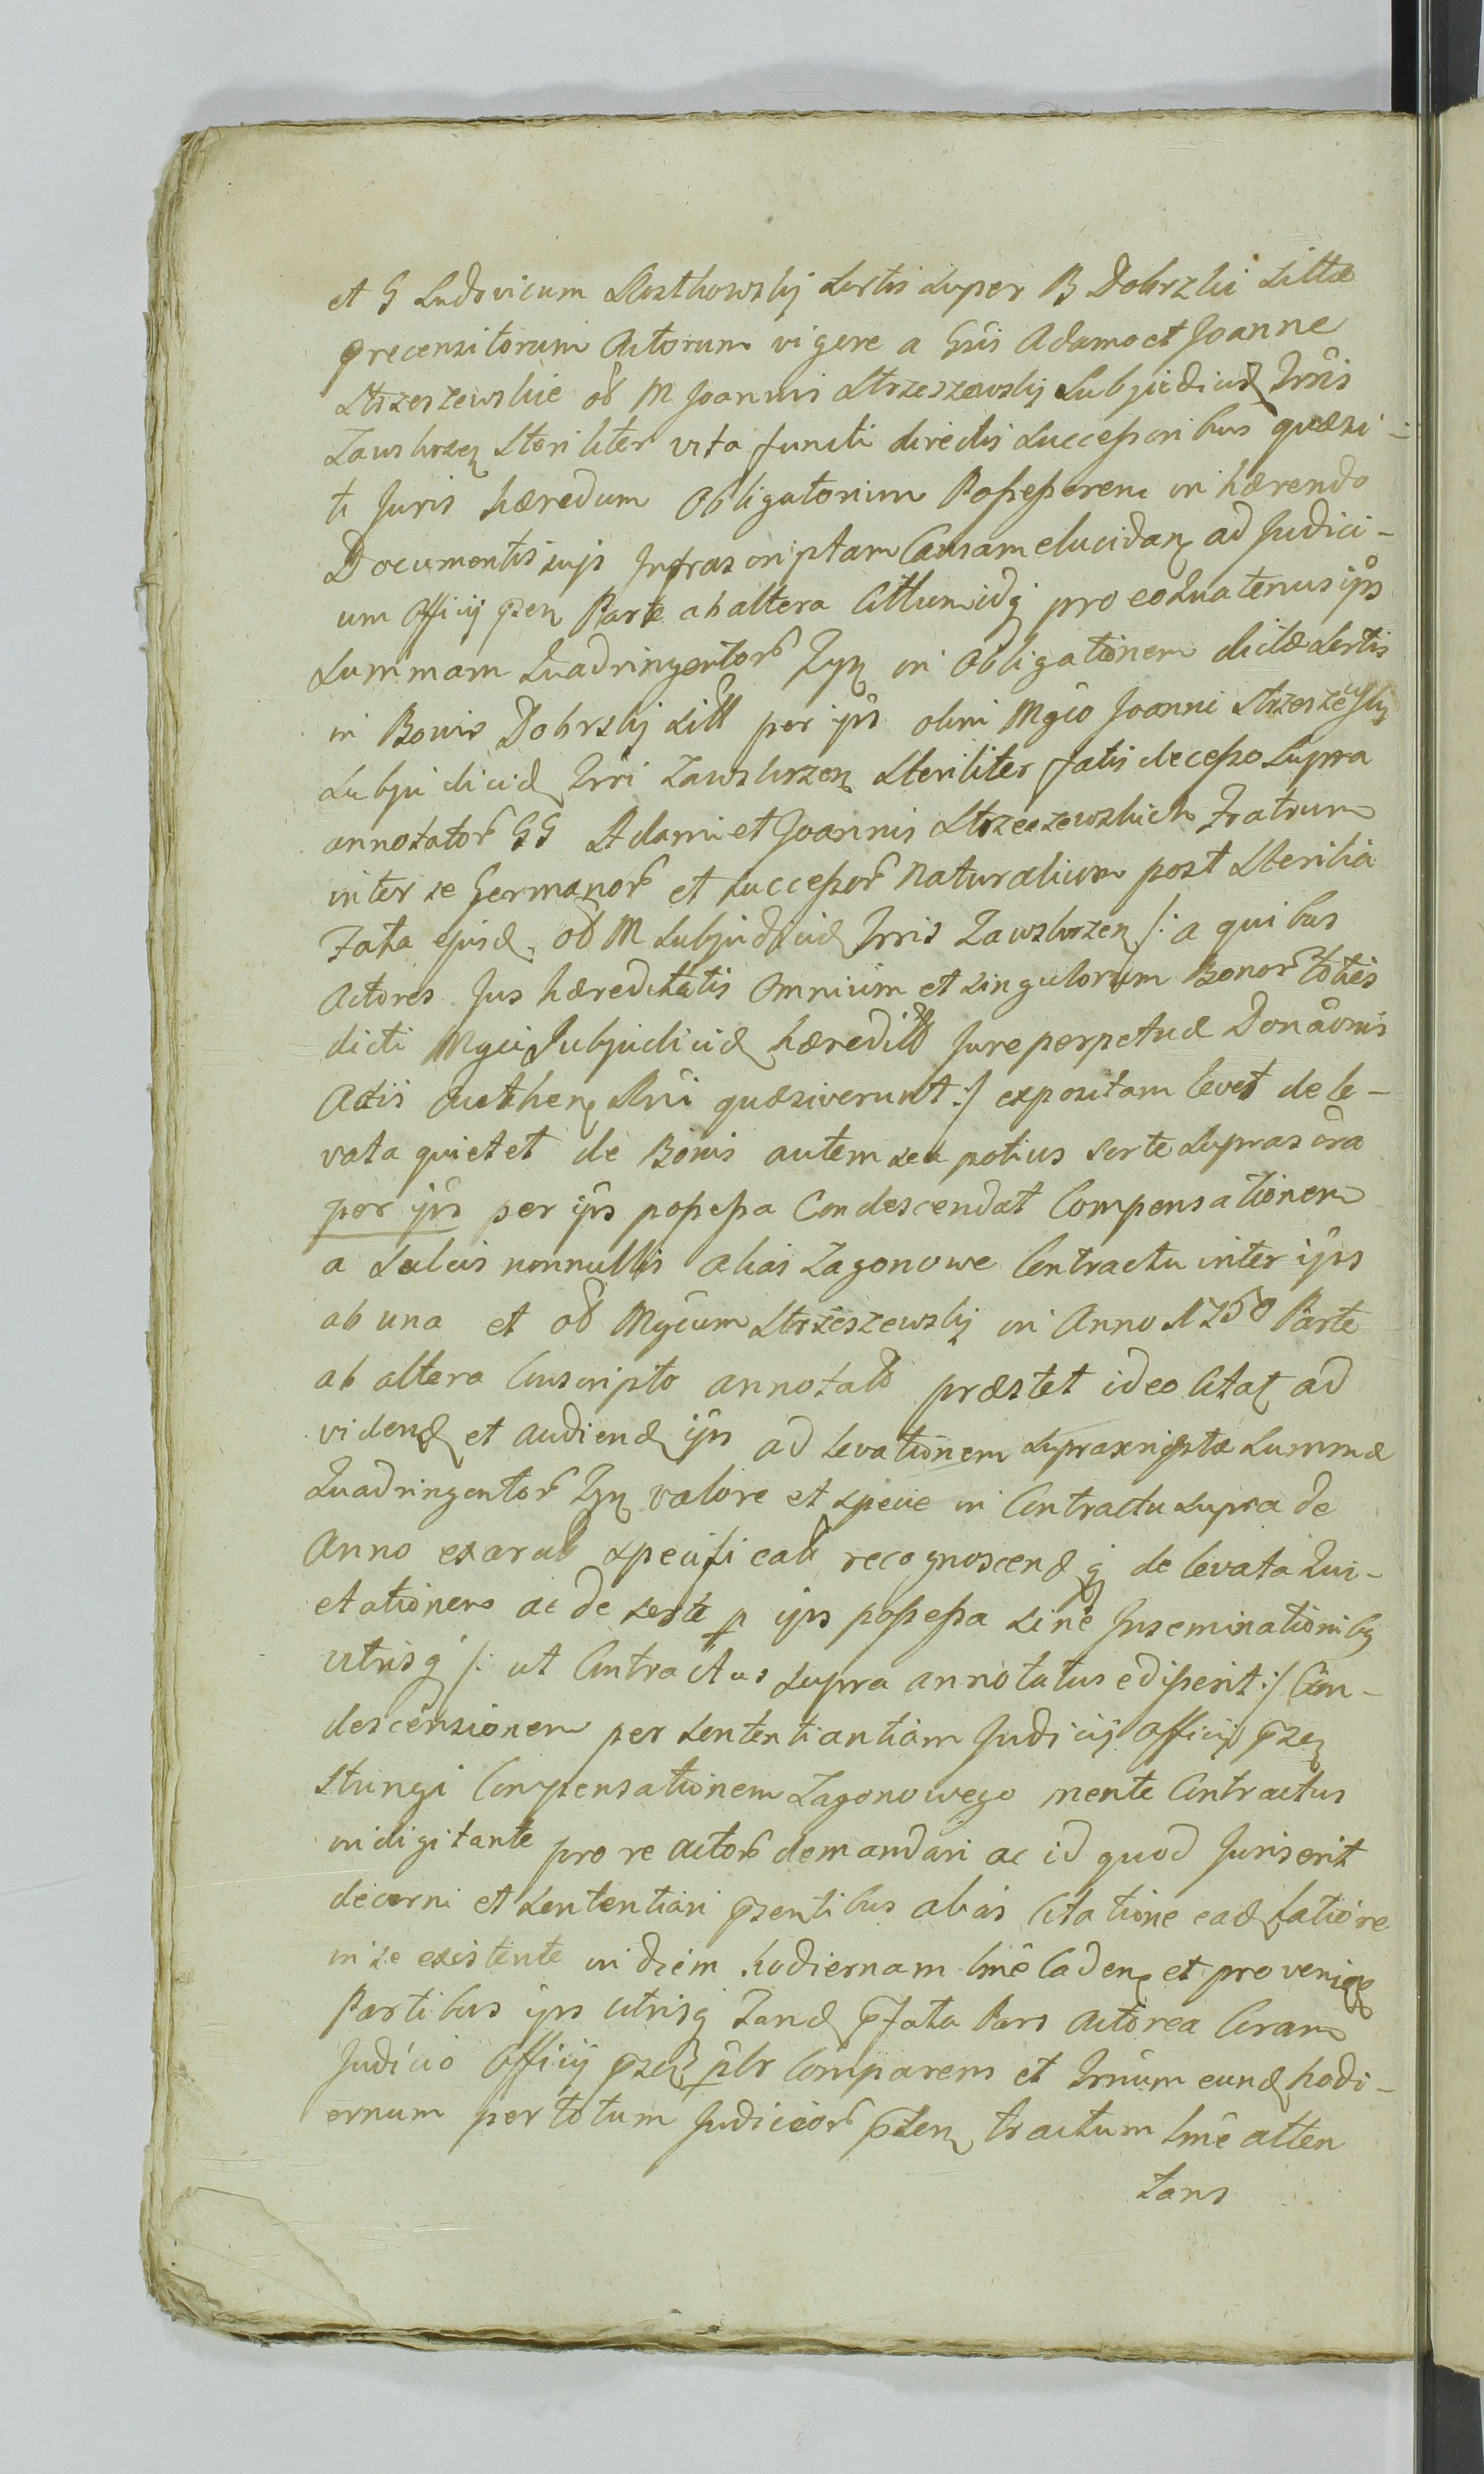 et G Ludovicum Rosthowskj Sortis super B Dobrzki Sittæ
precensitorum Actorum vigore a Gsis Adamo et Joanne
Strzeszewskie od M Joannis Strzeszewskj Subjudicid Trris
Zawskrzen Steriliter vita functi directis Successoribus quæsi-
ti Juris hæredum Obligatorium Possessorem in hærendo
Documentis sujs Infrascriptam Causam elucidan ad Judici-
um Officij pzen Parte ab altera Cittum idq pro eo Quatenus ips
Summam Quadringentor Tyn in Obligationem dictæ Sortis
in Bonis Dobrskj Sitt per ips olim Mgco Joanni Strzeszewskj
Subjudicid Trri Zawskrzen Steriliter fatis decesso Supra
annotator GG Adami et Joannis Strzeszewskich Fratrum
inter se Germanor et Successor Naturalium post Sterilia
Fata ejusd od M Subjudicid Trris Zawskrzen /: a quibus
Actores Jus hæreditatis Omnium et singulorum Bonor toties
dicti Mgci Subjudicid hæredittt Jure perpetuæ Donaonis
Actis Authen Rni quæsiverunt :/ expositam levet de le-
vata quietet de Bonis autem seu potius sorte Suprascra
per ips per ips possessa Condescendat Compensationem
a Sulcis nonnullis alias Zagonowe Contractu inter ips
ab una et od Mgcum Strzeszewskj in Anno 1750 Parte
ab altera Conscripto annotato præstet ideo Citat ad
videnđ et audienđ ips ad levationem suprascriptæ Summæ
Quadringentor Tyn valore et specie in Contractu supra de
Anno exarat specificat recognoscenđ q de levata Qui-
etationem ac de sorte p ips possessa sine Inseminationibg
utrisq /: ut Contractus supra annotatus edisserit :/ Con-
descensionem per Sententiantiam Judicij Officij pzen
stringi Compensationem Zagonowego mente Contractus
indigitante pro re actor demandari ac id quod Juris erit
decerni et sententiari pzentibus alias Citatione eađ latiore
in se existente in diem hodiernam lme Caden et provenien
Partibus ips utrisq Tand pfata Pars Actorea Coram
Judicio Officij pzen plr Comparens et Trnum eund hodi-
ernum per totum Judicior pten tractum lme atten
tans